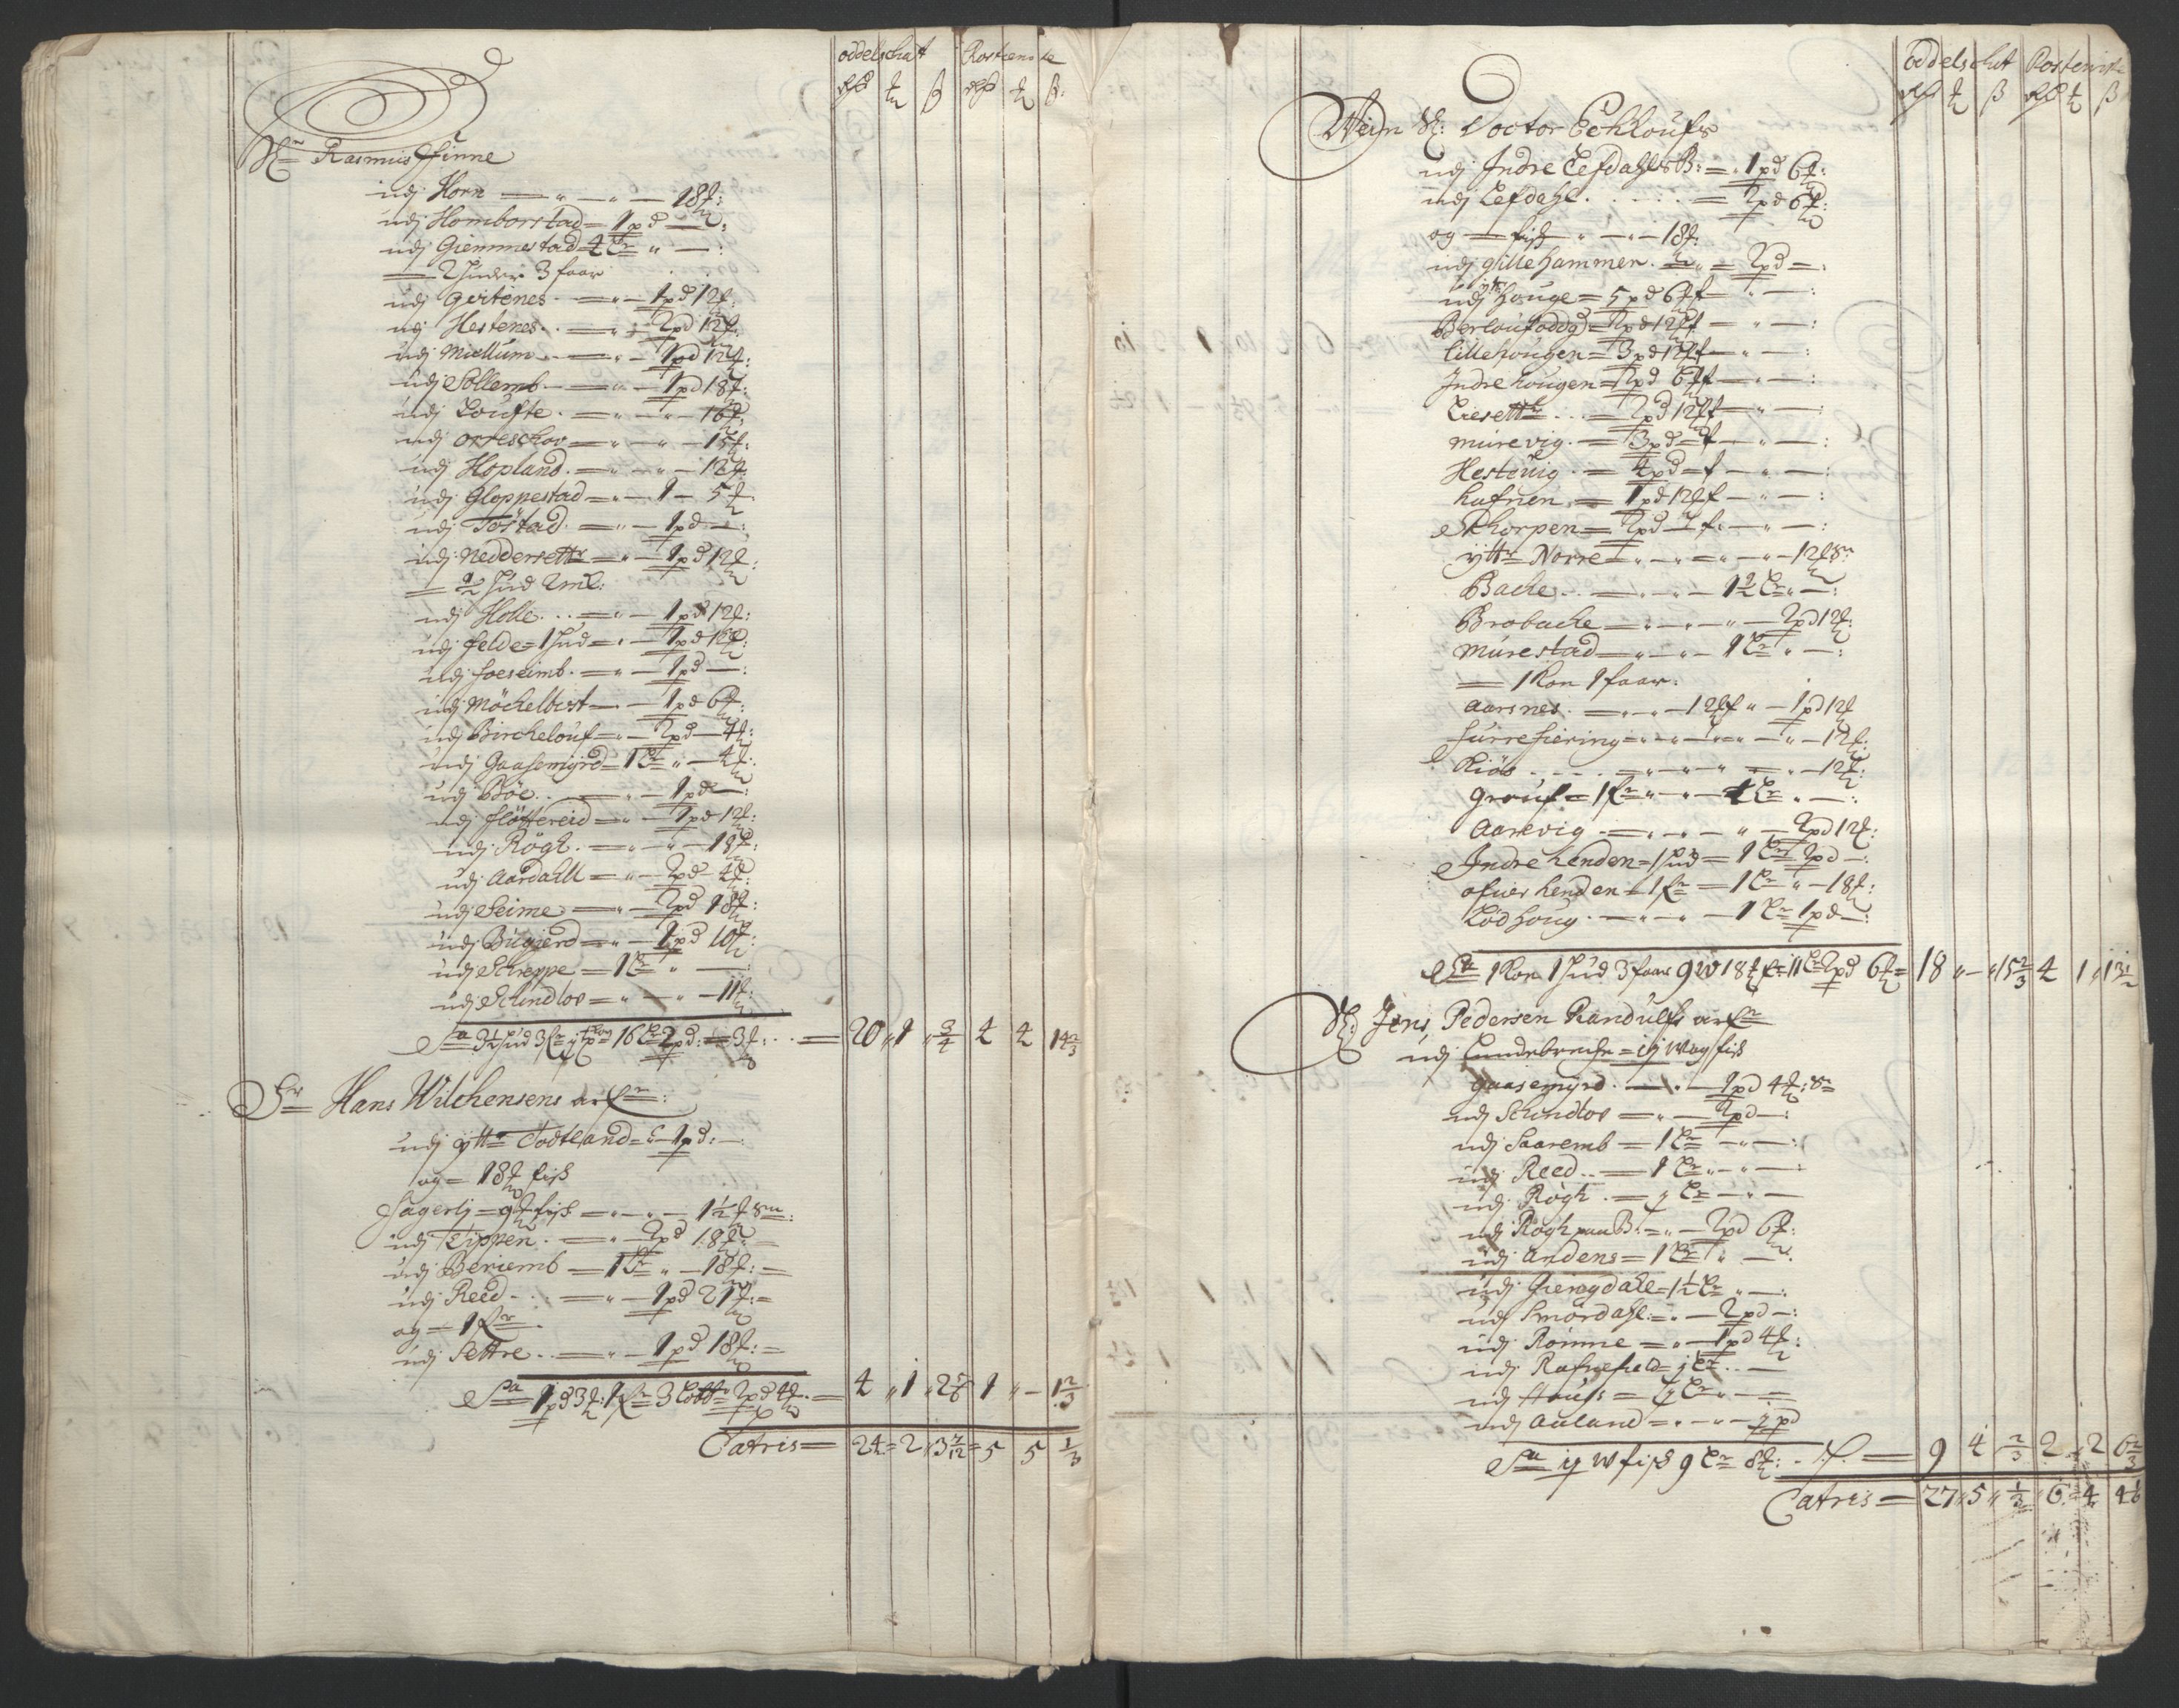 oddelschat Rostieniste
Rd ₰ ß Rd ₰ ß:
Hr Rasmus Finne
udj Horn — " — " — 18 ₰:
udj Homborstad = 1 pd —:
udj Giemmestad 4 Lr " —:
— 2 huder 3 faar
udj Geitenes — " — 1 pd 12 ₰:
udj Hestenes — " — 2 pd 12 ₰:
udj Mællum — " — 1 pd 12 ₰:
udj Sollemb — " — 1 pd 18 ₰:
udj Loufte — " — " — 16 ₰:
udj Orreschov — " — " — 15 ₰:
udj Hopland — " — " — 12 ₰:
udj Gloppestad — " — 1 — 5 ₰:
udj Töstad — " — 1 pd —:
udj Neddersettr — " — 1 pd 12 ₰:
— ½ hud 2 ml:
udj Holle — " — 1 pd 12 ₰:
udj Felde = 1 hud — " — 1 pd 18 ₰:
udj Foeseimb — " — 1 pd —:
udj Möchelbust — — 1 pd 6 ₰:
udj Birchelouf — " — 2 pd — 4 ₰:
udj Gaasemyrd = 1 Lr " — 4 ₰:
udj Böe — " — 1 pd —:
udj Flöttereid — " — 1 pd 12 ₰:
udj Rögh — " — " — 18 ₰:
udj Aardahll — " — 2 pd — 4 ₰:
udj Seime — " — 2 pd 18 ₰:
udj Bügierd — " — 1 pd 10 ₰:
udj Schreppe = 1 Lr " —:
udj Schindlos = " — " — 11 ₰:
Sa 3½ hud 3 16 Lr 2 pd: — 3 ₰: = 20 " 1 " ¾ 4 4 14⅔
Sr Hans Wilchensens arfr:
udj yttr Todtland = " — 1 pd: —
og = 18 ₰ fisk
Sagerlj = 9 ₰ fisk — " — " — 1½ ₰ Sm:
udj Tippen — " — 2 pd 18 ₰: =
udj Beriemb — 1 Lr " — 18 ₰: =
udj Reed — " — 1 pd 21 ₰: =
og — 1 fr
udj Settre — " — 1 pd 18 ₰: =
Sa 1 pd 3 ₰: 1 fr 3 2 pd 4 ₰ = 4 " 1 " 2 1 " — 1⅔
Latris = 24 = 2 " 3 7/12 = 5 5 ⅓
oddelschat Rostienste
Rd ₰ ß Rd ₰ ß
Hr: Doctor Echloufs
udj Indre Eefdahls B: = " 1 pd 6 ₰:
udj Eefdahl = 2 pd 6 ₰:
og — fisk " — " — 18 ₰:
udj Gillehammer — " = 2 pd —:
udj yttr Houge = 5 pd 6 ₰ f — " —:
Berloufodd = 2 pd 12 ₰ f — " —:
Lillehougen = 3 pd 12 ₰ f — " —:
Indre hougen = 2 pd 6 ₰ f — " —:
Liesettr — 2 pd 12 ₰ f — " —:
Murevig — 3 pd — f — " —:
Hestevig — 4 pd — f — " —:
Hafnen — 1 pd 12 ₰ f — " —:
Schorpen = 2 pd — f — " —:
yttr Norre — " — " — " — 12 ₰ Sm
Bache — " — " — 1½ Lr " —:
Brobache — " — " — " — 2 pd 12 ₰:
Murestad — " — " — 1 Lr " —:
— 1 Kon 1 faar:
Aarsnes — " — " — 12 ₰ f " — 1 pd 12 ₰
Surrefiering — " — " — " — " — 12 ₰:
Riös — " — " — " — " — 12 ₰:
Grouf — 1 fr " — " — 4 Lr " —:
Aarevig — " — " — " — 2 pd 12 ₰:
Indre henden = 1 hud = 1 Lr 2 pd —:
ofver henden — 1 fr — 1 Lr " — 18 ₰:
Lödhoug — " — " — 1 Lr 1 pd —:
Sa 1 Kon 1 hud 3 faar 9 W 18 ₰ f = 11 Lr 2 pd 6 ₰ = 18 " — " 15⅔ 4 1 " 13½
Hr: Jens Pedersen Randulfs arfr
udj Lundebreche = ij Wog fisk
Gaasemyrd — " — 1 pd 4 ₰: Sm
udj Schindlos — " — 2 pd —:
udj Saaremb — 1 Lr — " —:
udj Reed — 1 Lr " — " —:
udj Rögh — j Lr — " —
udj Rögh paa B: — " — 2 pd 6 ₰:
udj Andens — 1 Lr " —:
udj Giengdahl = 1½ Lr " —:
udj Smördahl: — " — 2 pd —:
udj Römme — " — 1 pd 4 ₰:
udj Rafnefield = j Lr —
udj Houfs = Lr " — =
udj Auland = " — " — j pd
Sa ij W fisk 9 Lr 8 ₰: = 9 4 ⅔ 2 " 2 6⅔
Latris = 27 " 5 " ⅓ " 6 " 4 4⅙